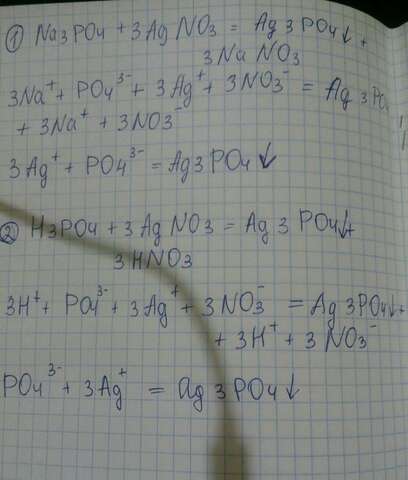 ① Na3PO4 + 3AgNO3 = Ag3PO4↓ +
3NaNO3
3Na⁺ + PO4³⁻ + 3Ag⁺ + 3NO3⁻ = Ag3PO
+ 3Na⁺ + 3NO3⁻
3Ag⁺ + PO4³⁻ = Ag3PO4↓
② H3PO4 + 3AgNO3 = Ag3PO4↓+
3HNO3
3H⁺ + PO4³⁻ + 3Ag⁺ + 3NO3⁻ = Ag3PO4↓+
+ 3H⁺ + 3NO3⁻
PO4³⁻ + 3Ag⁺ = Ag3PO4↓